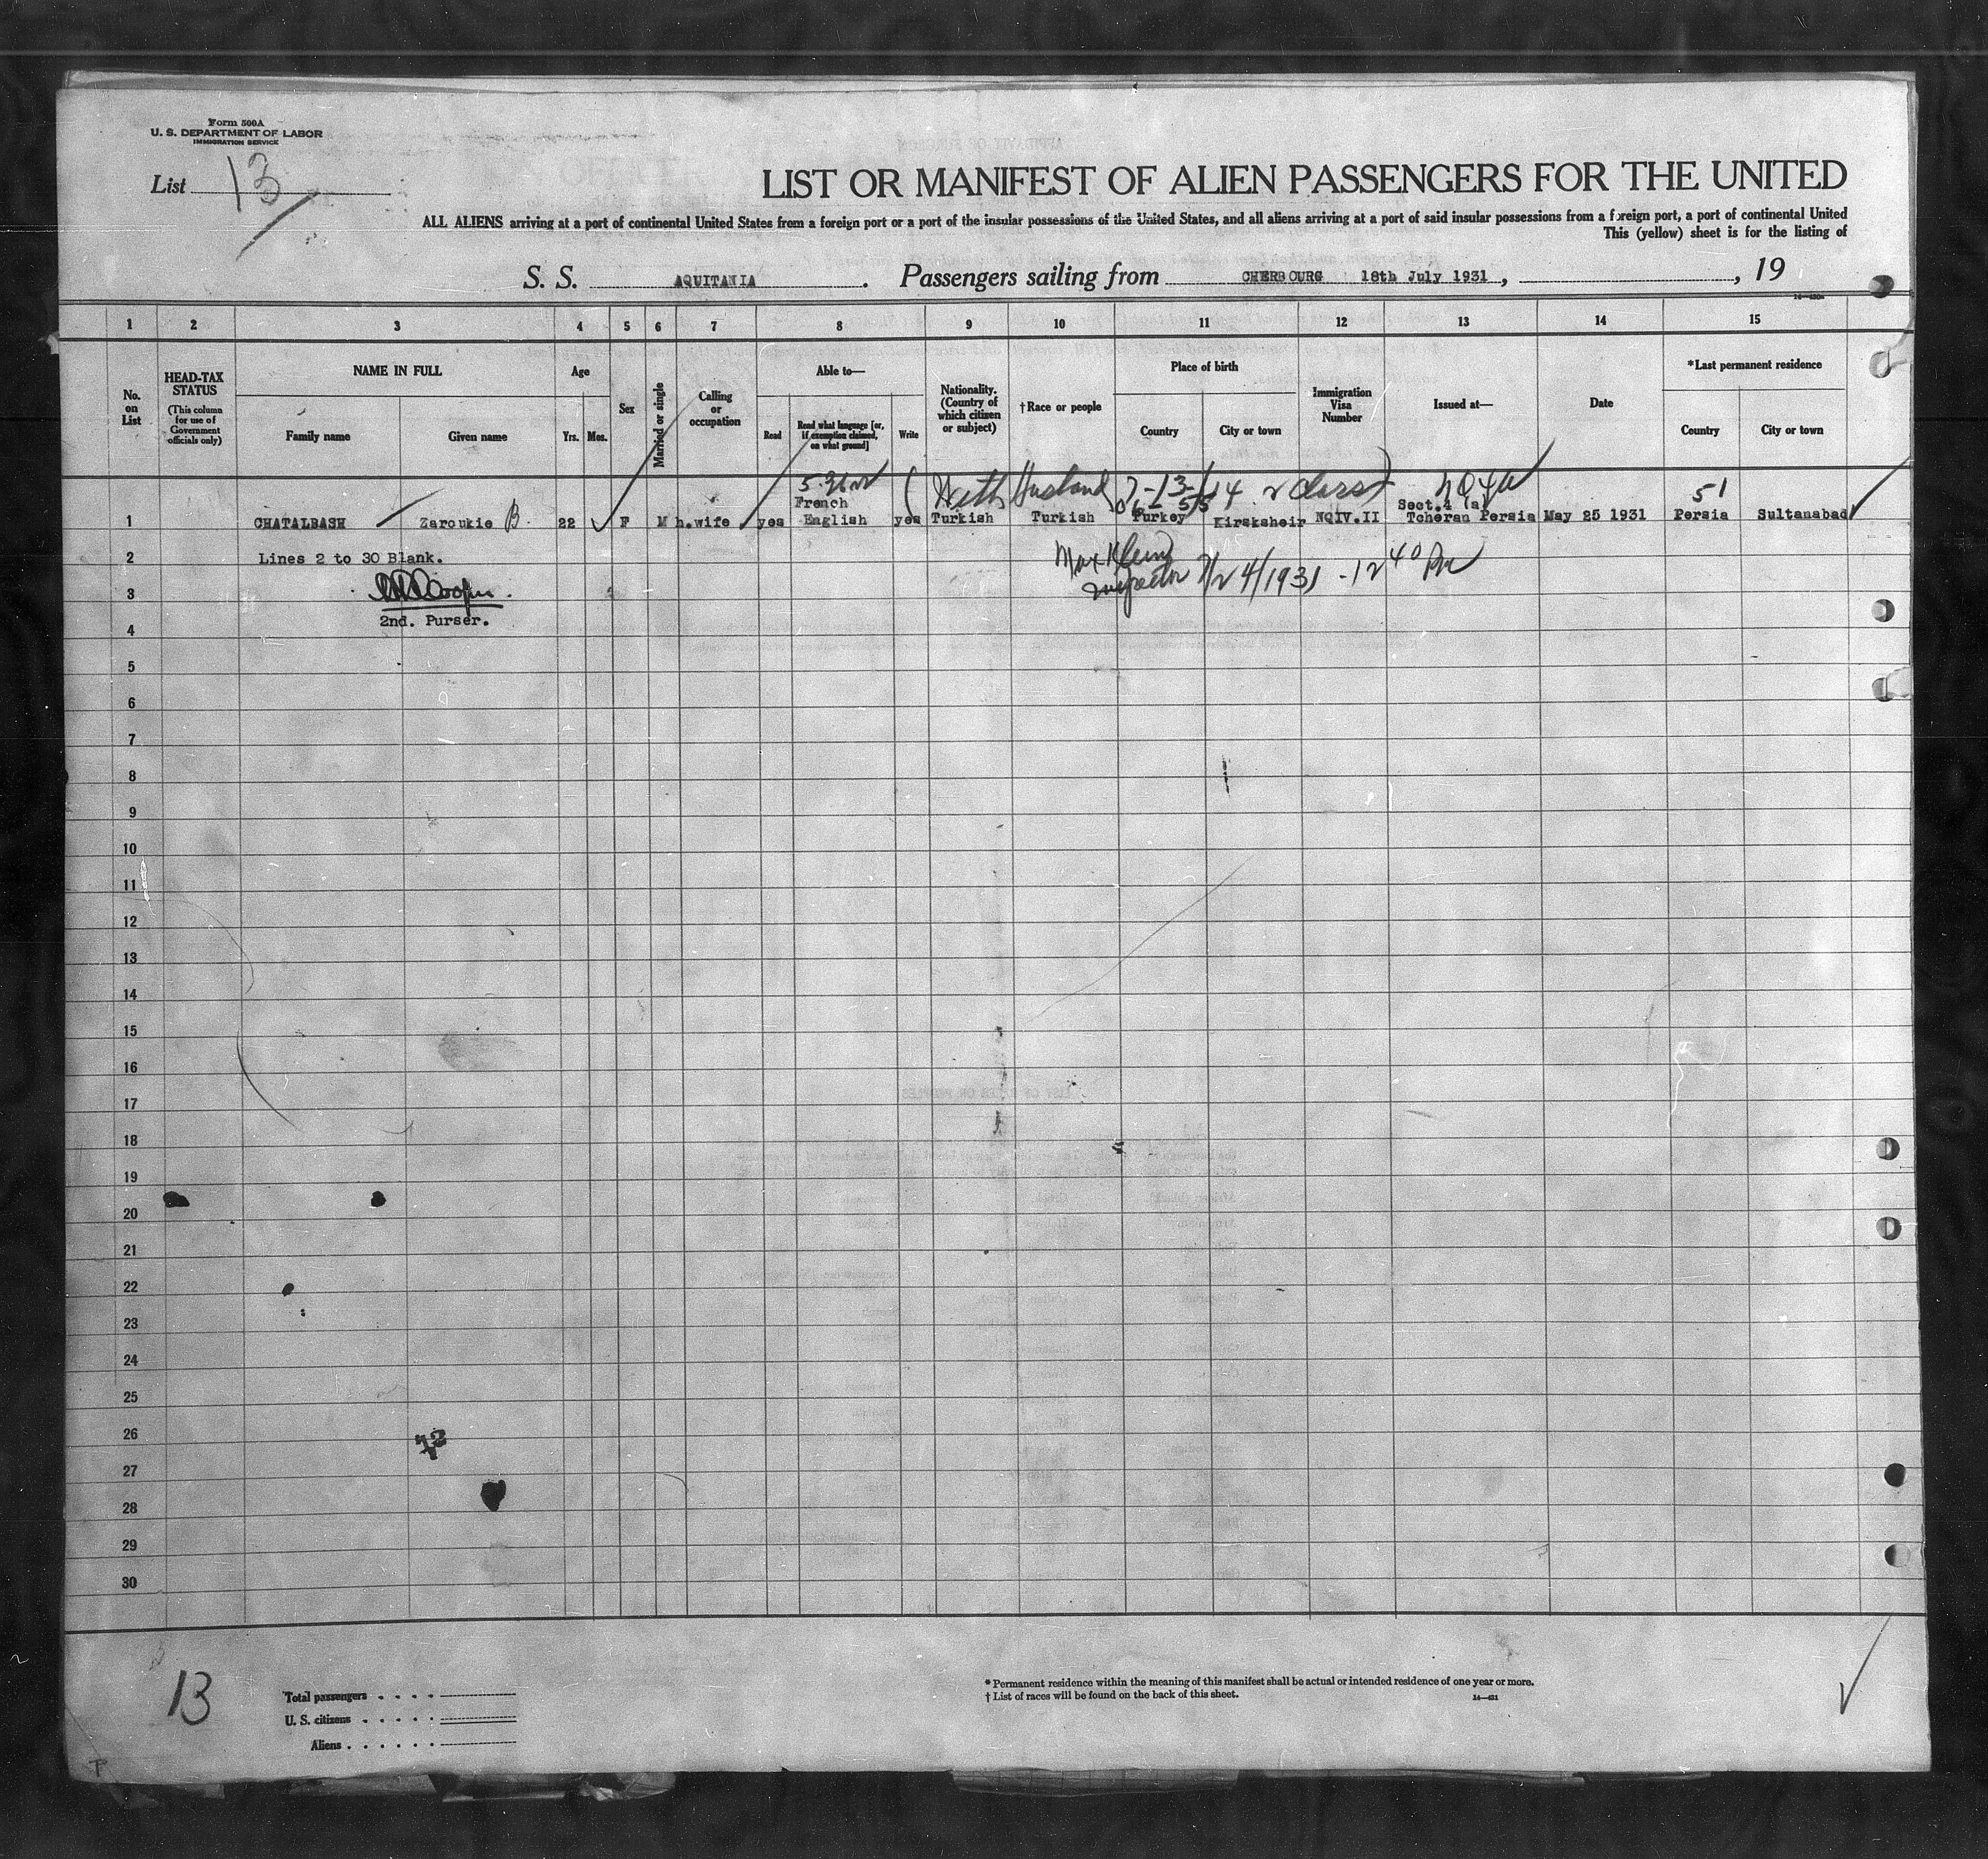 Form 500A
U. S. DEPARTMENT OF LABOR
IMMIGRATION SERVICE
List 13
LIST OR MANIFEST OF ALIEN PASSENGERS FOR THE UNITED
ALL ALIENS arriving at a port of continental United States from a foreign port or a port of the insular possessions of the United States, and all aliens arriving at a port of said insular possessions from a foreign port, a port of continental United
This (yellow) sheet is for the listing of
S. S. AQUITANIA. Passengers sailing from CHERBOURG 18th July 1931, , 19
1 2 3 4 5 6 7 8 9 10 11 12 13 14 15
No. on List
HEAD-TAX STATUS
(This column for use of Government officials only)
NAME IN FULL
Family name
Given name
Age
Yrs.
Mos.
Sex
Married or single
Calling or occupation
Able to—
Read
Read what language [or, if exemption claimed, on what ground]
Write
Nationality. (Country of which citizen or subject)
†Race or people
Place of birth
Country
City or town
Immigration Visa Number
Issued at—
Date
*Last permanent residence
Country
City or town
(With Husband 7-13-14 2 Class)
51
1 CHATALBASH Zaroukie B. 22 F M h.wife yes French English yes Turkish Turkish Turkey Kirsksheir NQIV.II Sect.4 (a) Teheran Persia May 25 1931 Persia Sultanabad
2 Lines 2 to 30 Blank.
Max Klein
Inspector 7/24/1931 - 12 40 PM
3
Cooper
2nd. Purser.
4
5
6
7
8
9
10
11
12
13
14
15
16
17
18
19
20
21
22
23
24
25
26
27
28
29
30
13
Total passengers
U. S. citizens
Aliens
* Permanent residence within the meaning of this manifest shall be actual or intended residence of one year or more.
† List of races will be found on the back of this sheet.
14—421